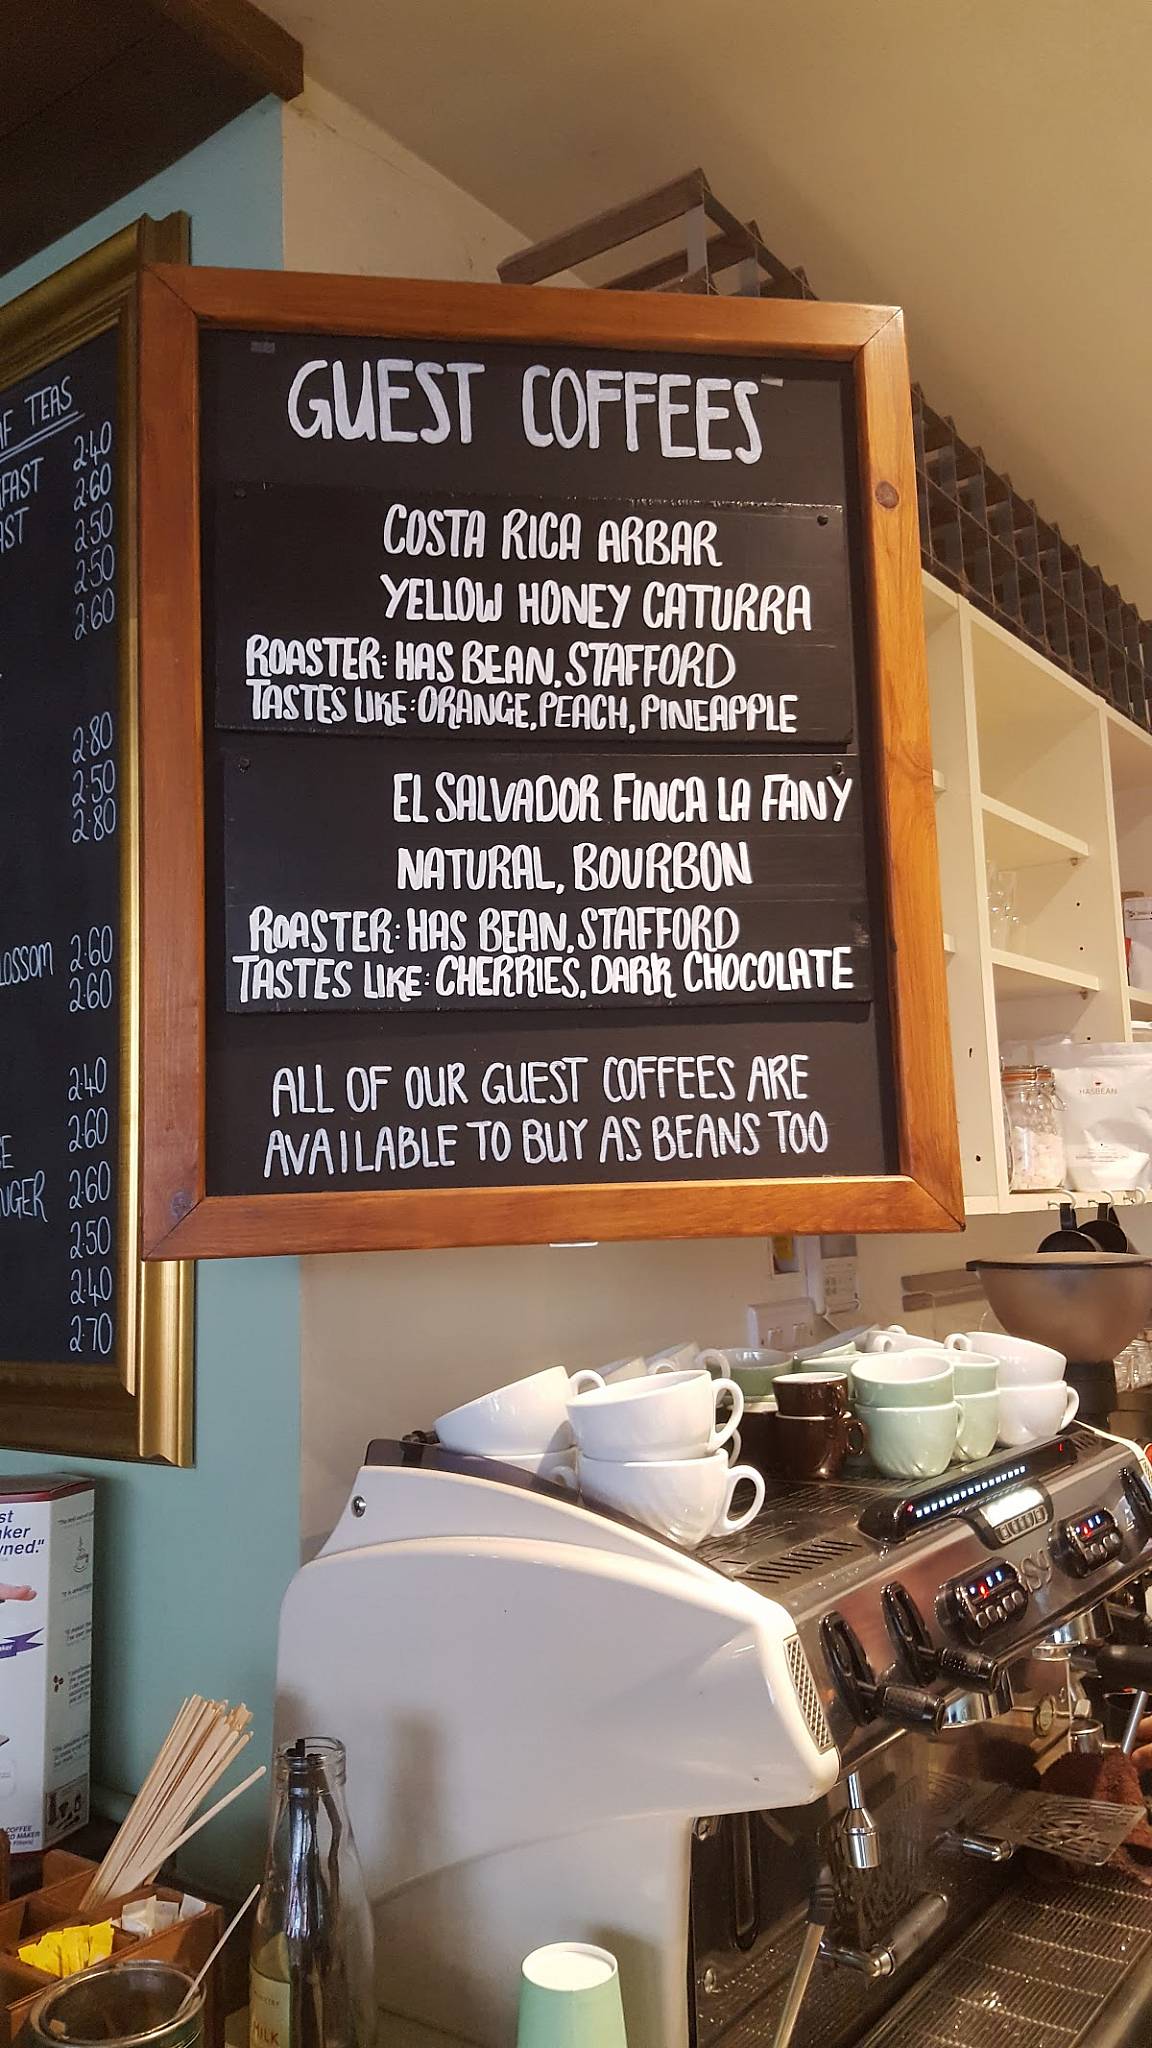 GUEST COFFEES
COSTA RICA ARBAR
YELLOW HONEY CATURRA
ROASTER: HAS BEAN, STAFFORD
TASTES LIKE: ORANGE, PEACH, PINEAPPLE
EL SALVADOR FINCA LA FANY
NATURAL, BOURBON
ROASTER: HAS BEAN, STAFFORD
TASTES LIKE: CHERRIES, DARK CHOCOLATE
ALL OF OUR GUEST COFFEES ARE
AVAILABLE TO BUY AS BEANS TOO
TEAS
2.40
2.60
2.50
2.50
2.60
2.80
2.50
2.80
2.60
2.60
2.40
2.60
2.60
2.50
2.40
2.70
HASBEAN
MILK